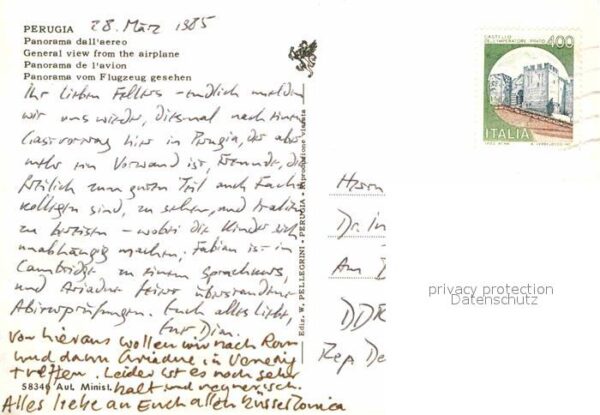 PERUGIA 28. März 1985
Panorama dall'aereo
General view from the airplane
Panorama de l'avion
Panorama vom Flugzeug gesehen
Ihr lieben Fellers - endlich melden
wir uns wieder, diesmal nach einem
Gastvortrag hier in Perugia, der aber
mehr ein Vorwand ist, Freunde, die
freilich zum guten Teil auch Fach-
kollegen sind, zu sehen, und Italien
zu bereisen - wobei die Kinder sich
unabhängig machen. Fabian ist in
Cambridge zu einem Sprachkurs,
und Ariadne feiert überstandene
Abiturprüfungen. Euch alles Liebe,
Euer Dian.
Von hier aus wollen wir nach Rom
und dann Ariadne in Venedig
treffen. Leider ist es noch sehr
kalt und regnerisch.
58346 Aut. Minist.
Alles Liebe an Euch allen Küsse Monica
Ediz. W. PELLEGRINI - PERUGIA - Riproduzione vietata
CASTELLO
DELL'IMPERATORE PRATO
400
ITALIA
Herrn
Dr. in
Am
DDR
Rep De
privacy protection
Datenschutz